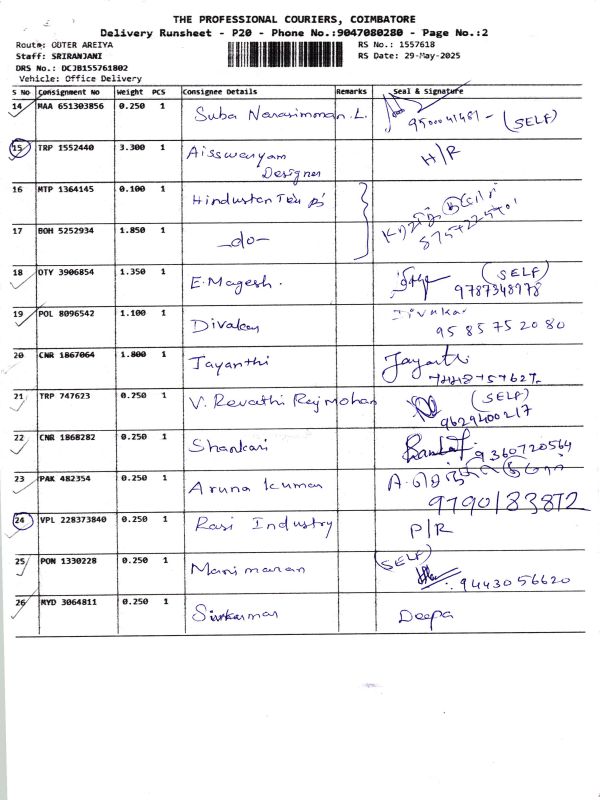 THE PROFESSIONAL COURIERS, COIMBATORE
Delivery Runsheet - P20 - Phone No.:9047080280 - Page No.:2
Route: OUTER AREIYA RS No.: 1557618
Staff: SRIRANJANI RS Date: 29-May-2025
DRS No.: DCJB155761802
Vehicle: Office Delivery
S No Consignment No Weight PCS Consignee Details Remarks Seal & Signature
14 MAA 651303856 0.250 1 Suba Narasimman.L. 9500041481 - (SELF)
15 TRP 1552440 3.300 1 Aisswaryam H/R
Designer
16 MTP 1364145 0.100 1 Hindustan
17 BOH 5252934 1.850 1 -do-
18 OTY 3906854 1.350 1 E.Magesh. (SELF)
9787348978
19 POL 8096542 1.100 1 Divakar Divakar
95 85 75 20 80
20 CNR 1867064 1.800 1 Jayanthi Jayanthi
21 TRP 747623 0.250 1 V. Revathi Rajmohan (SELF)
9629400217
22 CNR 1868282 0.250 1 Shankari 9360720564
23 PAK 482354 0.250 1 Aruna kumar A.
9790183872
24 VPL 228373840 0.250 1 Rasi Industry P/R
25 PON 1330228 0.250 1 Manimaran (SELF)
9443056620
26 MYD 3064811 0.250 1 Sivakumar Deepa